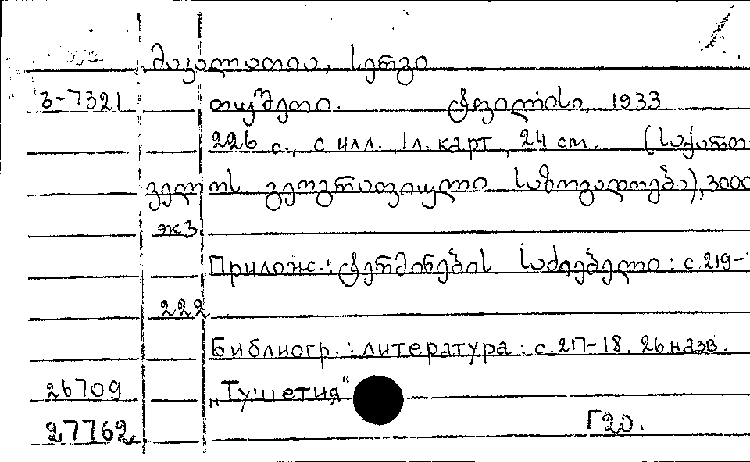 მაკალათია, სერგი
3-7321 თუშეთი. ტფილისი, 1933
226 с., с илл. 1л. карт, 24 см. (საქართ-
ველოს გეოგრაფიული საზოგადოება), 3000
экз
Прилож.: ტერმინების საძიებელი: с. 219-
222
Библиогр.: литература: с. 217-18. 26 назв.
26709 „Тушетия"
27762 Г20.